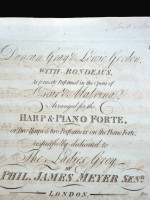 Duncan Gray & Lewie Gordon,
WITH RONDEAUS,
As favorite Performed in the Opera of
Oscar & Malvina
Arranged for the
HARP & PIANO FORTE,
or Two Harps & two Performers on the Piano Forte,
respectfully dedicated to
The Ladies Grey
BY
PHIL. JAMES MEYER SENR.
LONDON,